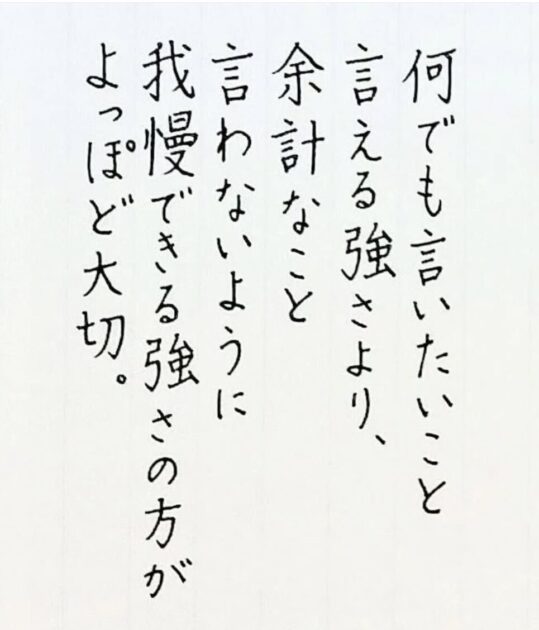 何でも言いたいこと
言える強さより、
余計なこと
言わないように
我慢できる強さの方が
よっぽど大切。